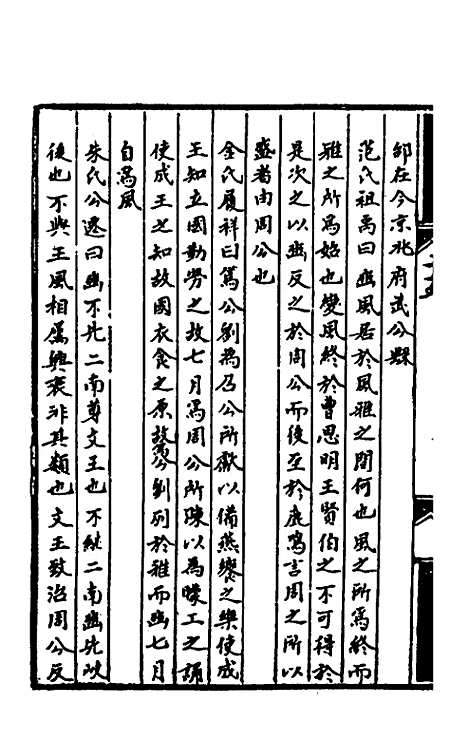 邰在今京兆府武公縣
范氏祖禹曰豳風居於風雅之閒何也風之所爲終而
雅之所爲始也變風終於曹思明王賢伯之不可得於
是次之以豳反之於周公而後至於鹿鳴言周之所以
盛者由周公也
金氏履祥曰篤公劉爲召公所獻以備燕饗之樂使成
王知立國勤勞之故七月爲周公所陳以為矇工之誦
使成王之知故國衣食之原故篤公劉列於雅而豳七月
自爲風
朱氏公遷曰豳不先二南尊文王也不繼二南豳先以
後也不與王風相屬興衰非其類也文王致治周公反